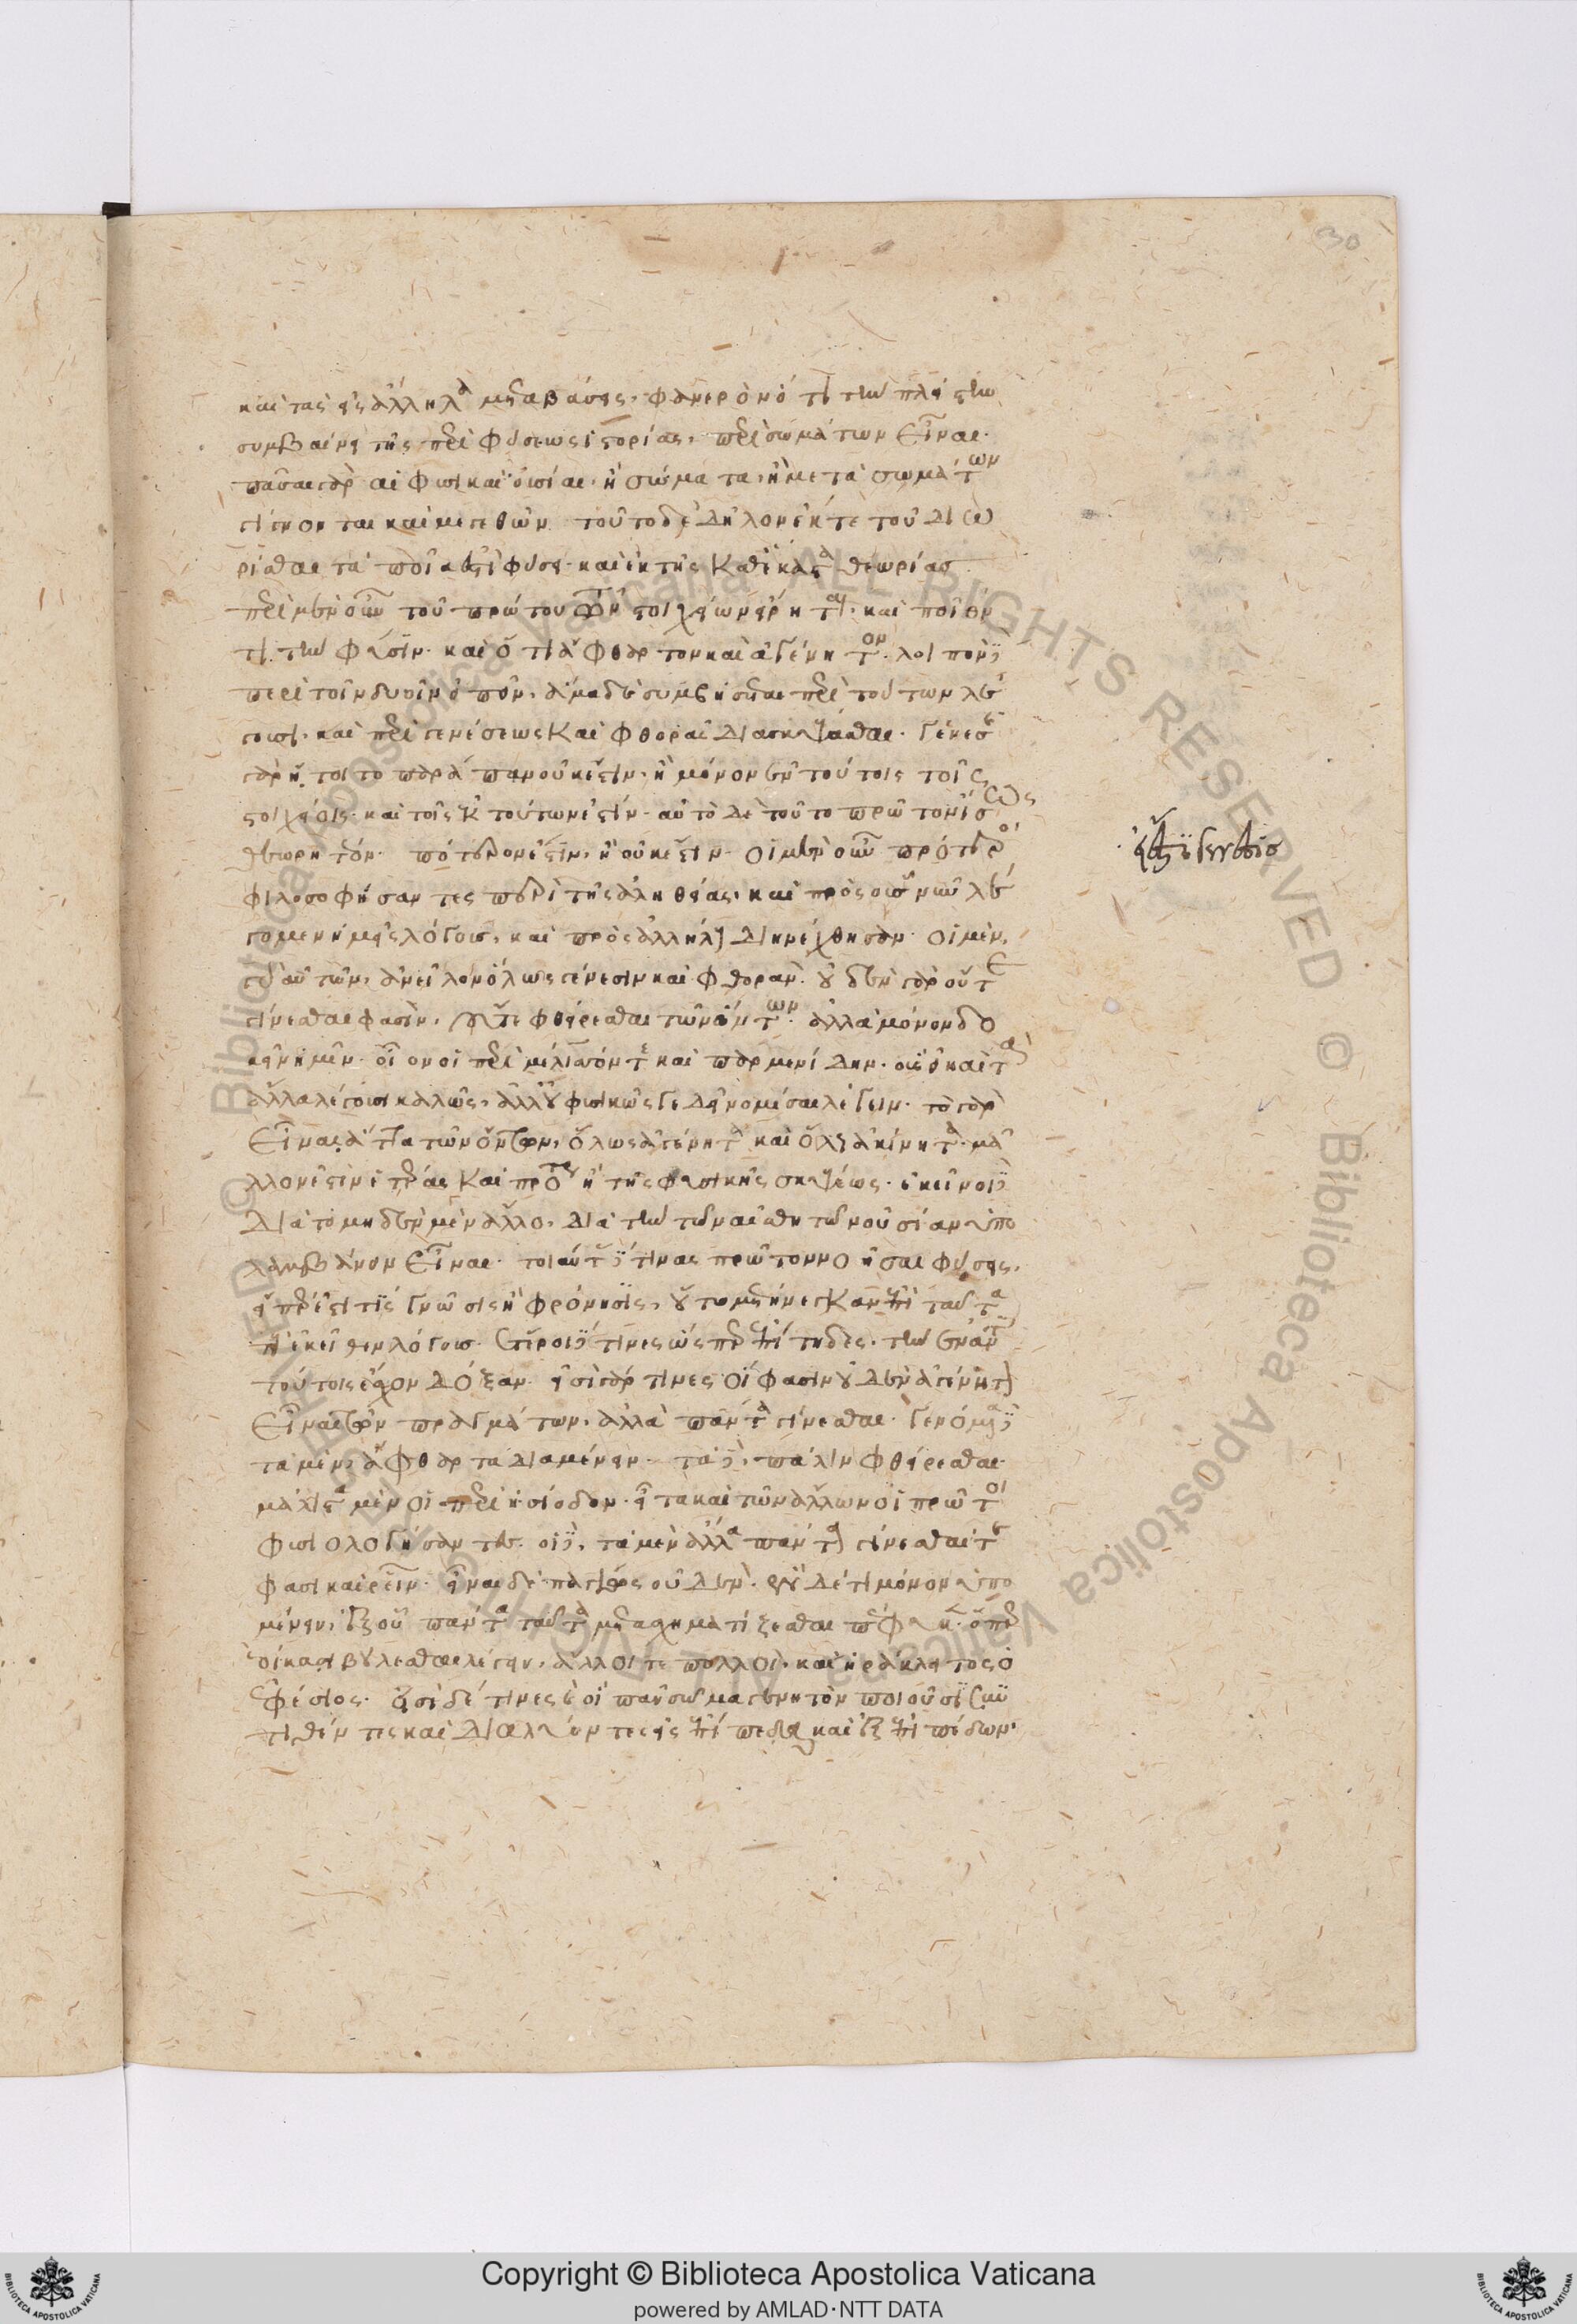 30
καὶ τὰς εἰς ἄλληλα μεταβάσεις, φανερὸν ὅτι τὴν πλείστην
συμβαίνει τῆς περὶ φύσεως ἱστορίας, περὶ σωμάτων εἶναι.
πᾶσαι γὰρ αἱ φυσικαὶ οὐσίαι, ἢ σώματα, ἢ μετὰ σωμάτων
γίγνονται καὶ μεγεθῶν. τοῦτο δὲ δῆλον ἔκ τε τοῦ διω
ρίσθαι τὰ ποῖά ἐστι φύσει. καὶ ἐκ τῆς καθ' ἕκαστα θεωρίας.
περὶ μὲν οὖν τοῦ πρώτου τῶν στοιχείων εἴρηται. καὶ ποῖόν
τι τὴν φύσιν. καὶ ὅτι ἄφθαρτον καὶ ἀγένητον. λοιπὸν δὲ
περὶ τοῖν δυοῖν εἰπεῖν. ἅμα δὲ συμβήσεται περὶ τούτων λέ
γουσι. καὶ περὶ γενέσεως καὶ φθορᾶς διασκέψασθαι. γένεσις
γὰρ ἤτοι τὸ παράπαν οὐκ ἔστιν, ἢ μόνον ἐν τούτοις τοῖς
στοιχείοις. καὶ τοῖς ἐκ τούτων ἐστίν. αὐτὸ δὲ τοῦτο πρῶτον ἴσως
θεωρητέον. πότερον ἔστιν, ἢ οὐκ ἔστιν. οἱ μὲν οὖν πρότεροι
φιλοσοφήσαντες περὶ τῆς ἀληθείας. καὶ πρὸς οὓς νῦν λέ
γομεν ἡμεῖς λόγους, καὶ πρὸς ἀλλήλους διηνέχθησαν. οἱ μὲν
γὰρ αὐτῶν, ἀνεῖλον ὅλως γένεσιν καὶ φθοράν. οὐδὲν γὰρ οὔτε
γίνεσθαι φασὶν, οὔτε φθείρεσθαι τῶν ὄντων. ἀλλὰ μόνον δο
κεῖν ἡμῖν. οἷον οἱ περὶ μέλισσόν τε καὶ παρμενίδην. οὓς εἰ καὶ τὰ
ἄλλα λέγουσι καλῶς, ἀλλ' οὐ φυσικῶς γε δεῖ νομίσαι λέγειν. τὸ γὰρ
εἶναι ἄττα τῶν ὄντων, ὅλως ἀγένητα καὶ ὅλως ἀκίνητα. μᾶ
λλον ἐστὶν ἑτέρας καὶ προτέρας ἢ τῆς φυσικῆς σκέψεως. ἐκεῖνοι δὲ
διὰ τὸ μηδὲν μὲν ἄλλο, διὰ τὴν τῶν αἰσθητῶν οὐσίαν ὑπο
λαμβάνειν εἶναι. τοιαύτας δέ τινας πρῶτον νοῆσαι φύσεις,
εἴπερ ἔσται τις γνῶσις ἢ φρόνησις, οὕτω μετήνεγκαν ἐπὶ ταῦτα
τοὺς ἐκεῖθεν λόγους. ἕτεροι δέ τινες ὥσπερ ἐπίτηδες. τὴν ἐναντίαν
τούτοις ἔσχον δόξαν. εἰσὶ γάρ τινες οἵ φασιν οὐδὲν ἀγένητον
εἶναι τῶν πραγμάτων, ἀλλὰ πάντα γίνεσθαι. γενόμενα δὲ
τὰ μὲν, ἄφθαρτα διαμένειν. τὰ δὲ, πάλιν φθείρεσθαι
μάλιστα μὲν οἱ περὶ ἡσίοδον. εἶτα καὶ τῶν ἄλλων οἱ πρῶτοι
φυσιολογήσαντες. οἱ δὲ, τὰ μὲν ἄλλα πάντα γίνεσθαί τέ
φασι καὶ ῥεῖν. εἶναι δὲ παγίως οὐδέν. ἓν δέ τι μόνον ὑπο
μένειν, ἐξ οὗ πάντα ταῦτα μετασχηματίζεσθαι πέφυκεν. ὅπερ
ἐοίκασι βούλεσθαι λέγειν, ἄλλοι τε πολλοὶ. καὶ ἡράκλειτος ὁ
ἐφέσιος. εἰσὶ δέ τινες οἳ πᾶν σῶμα γενητὸν ποιοῦσι συν
τιθέντες καὶ διαλύοντες εἰς ἐπίπεδα καὶ ἐξ ἐπιπέδων.